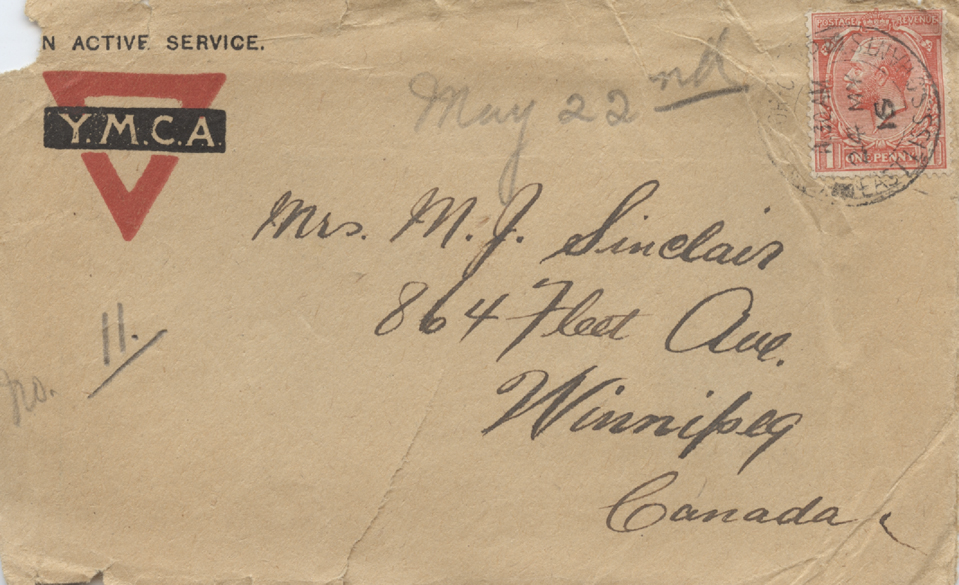 N ACTIVE SERVICE.
Y.M.C.A
May 22nd
POSTAGE REVENUE
ONE PENNY
24 MY
15
Mrs. M. J. Sinclair
864 Fleet Ave.
Winnipeg
Canada
No. 11.